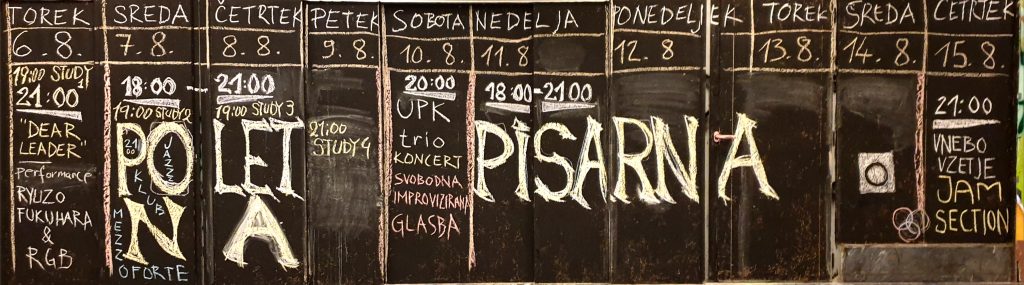 TOREK SREDA ČETRTEK PETEK SOBOTA NEDELJA PONEDELJEK TOREK SREDA ČETRTEK
6.8. 7.8. 8.8. 9.8 10.8. 11.8 12.8 13.8. 14.8. 15.8.
19:00 STUDY 1
21:00
"DEAR
LEADER"
performance
RYUZO
FUKUHARA
&
RGB
18:00 - 21:00
19:00 STUDY 2
19:00 STUDY 3
POLET
NA
21:00
JAZZ
KLUB
MEZZOFORTE
21:00
STUDY 4
20:00
UPK
trio
KONCERT
SVOBODNA
IMPROVIZIRANA
GLASBA
18:00-21:00
PISARNA
21:00
VNEBO
VZETJE
JAM
SECTION